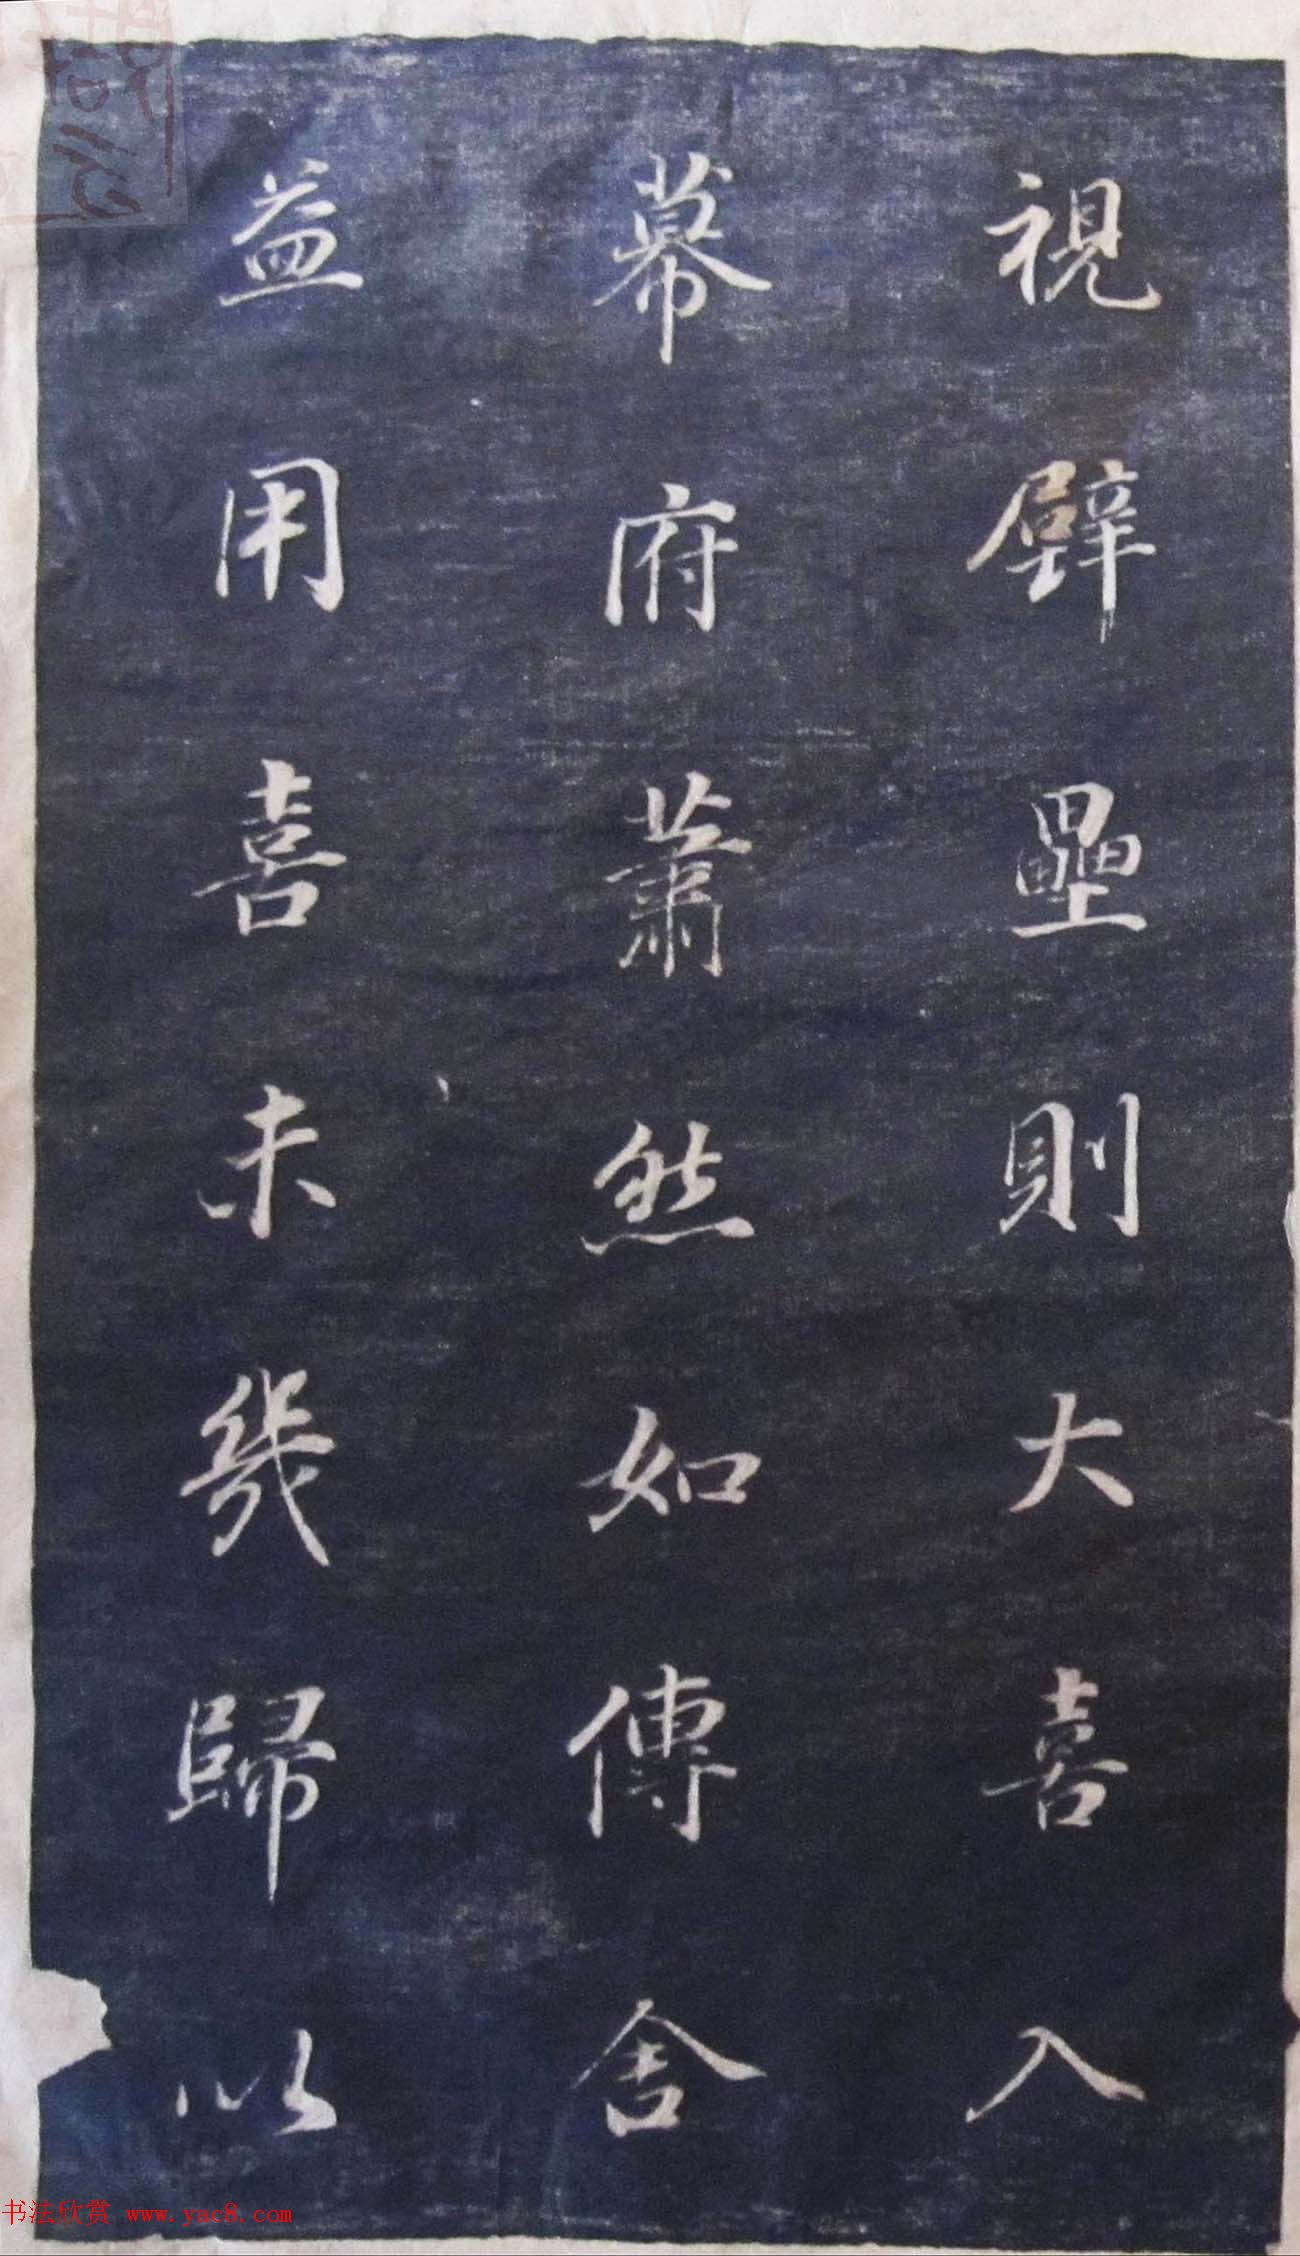 視壁壘則大喜入
幕府蕭然如傳舍
益用喜未幾歸以
书法欣赏 www.yac8.com